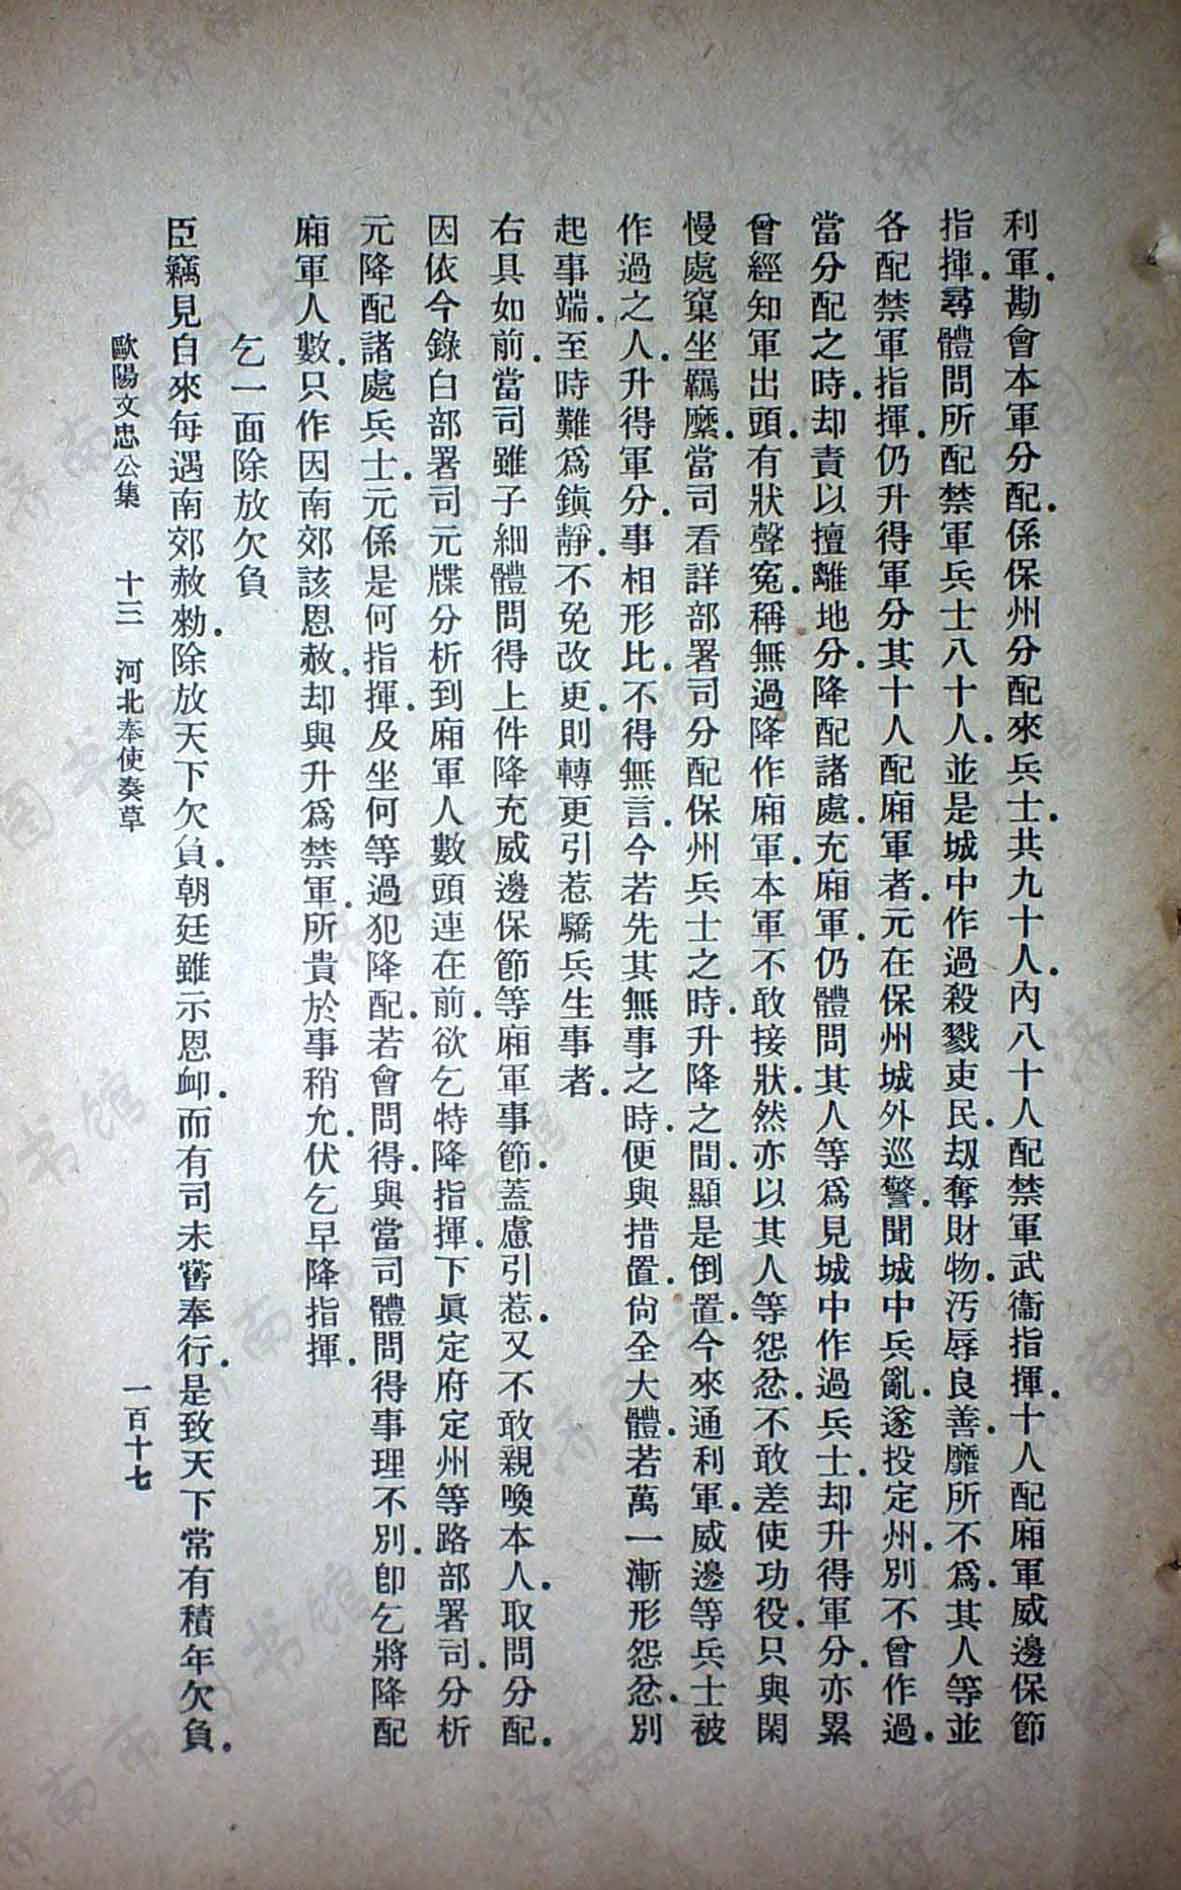 利軍．勘會本軍分配．係保州分配來兵士共九十人．內八十人配禁軍武衞指揮．十人配廂軍威邊保節
指揮．尋體問所配禁軍兵士八十人．並是城中作過殺戮吏民．刼奪財物．汚辱良善．靡所不爲．其人等並
各配禁軍指揮．仍升得軍分．其十人配廂軍者．元在保州城外巡警．聞城中兵亂．遂投定州．別不曾作過．
當分配之時．却責以擅離地分．降配諸處．充廂軍．仍體問其人等爲見城中作過兵士．却升得軍分．亦累
曾經知軍出頭．有狀聲寃．稱無過降作廂軍．本軍不敢接狀．然亦以其人等怨忿．不敢差使功役．只與閑
慢處窠坐羈縻．當司看詳部署司分配保州兵士之時．升降之間．顯是倒置．今來通利軍．威邊等兵士被
作過之人．升得軍分．事相形比．不得無言．今若先其無事之時．便與措置．尙全大體．若萬一漸形怨忿．別
起事端．至時難爲鎭靜．不免改更．則轉更引惹驕兵生事者．
右具如前．當司雖子細體問得上件降充威邊保節等廂軍事節．蓋慮引惹．又不敢親喚本人．取問分配．
因依今錄白部署司元牒分析到廂軍人數頭連在前．欲乞特降指揮．下眞定府定州等路部署司．分析
元降配諸處兵士．元係是何指揮．及坐何等過犯降配．若會問得．與當司體問得事理不別．卽乞將降配
廂軍人數．只作因南郊該恩赦．却與升爲禁軍．所貴於事稍允．伏乞早降指揮．
乞一面除放欠負
臣竊見自來每遇南郊赦勑．除放天下欠負．朝廷雖示恩卹．而有司未嘗奉行．是致天下常有積年欠負．
歐陽文忠公集　十三　河北奉使奏草　一百十七